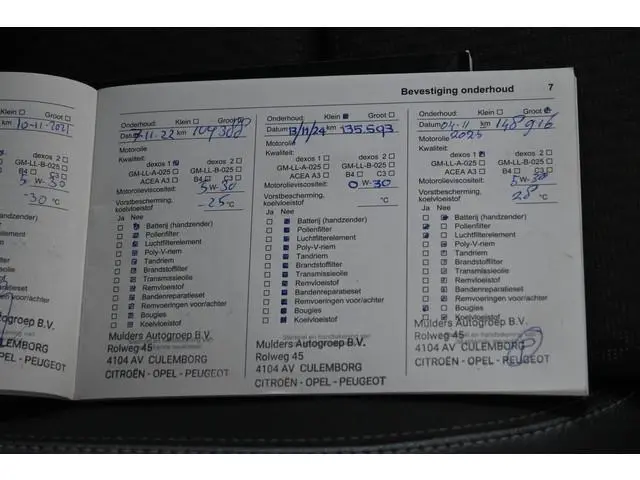 Bevestiging onderhoud 7
Klein Groot
km 10-11-2021
dexos 2
GM-LL-B-025
C3
5 W-30
30 °C
andzender)
element
olie
voor/achter
Onderhoud: Klein Groot
Datum 7-11-22 km 104388
Motorolie
Kwaliteit:
dexos 1 dexos 2
GM-LL-A-025 GM-LL-B-025
ACEA A3 B4 C3
Motorolieviscositeit: 5 W-30
Vorstbescherming,
koelvloeistof -25 °C
Ja Nee
Batterij (handzender)
Pollenfilter
Luchtfilterelement
Poly-V-riem
Tandriem
Brandstoffilter
Transmissieolie
Remvloeistof
Bandenreparatieset
Remvoeringen voor/achter
Bougies
Koelvloeistof
Mulders Autogroep B.V.
Rolweg 45
4104 AV CULEMBORG
CITROËN - OPEL - PEUGEOT
Onderhoud: Klein Groot
Datum 13/11/24 km 135.593
Motorolie
Kwaliteit:
dexos 1 dexos 2
GM-LL-A-025 GM-LL-B-025
ACEA A3 B4 C3
Motorolieviscositeit: 0 W-30
Vorstbescherming,
koelvloeistof °C
Ja Nee
Batterij (handzender)
Pollenfilter
Luchtfilterelement
Poly-V-riem
Tandriem
Brandstoffilter
Transmissieolie
Remvloeistof
Bandenreparatieset
Remvoeringen voor/achter
Bougies
Koelvloeistof
Stempel en handtekening van
Mulders Autogroep B.V.
Rolweg 45
4104 AV CULEMBORG
CITROËN - OPEL - PEUGEOT
Onderhoud: Klein Groot
Datum 04-11 km 148916
Motorolie 2025
Kwaliteit:
dexos 1 dexos 2
GM-LL-A-025 GM-LL-B-025
ACEA A3 B4 C3
Motorolieviscositeit: 5 W-30
Vorstbescherming,
koelvloeistof 28 °C
Ja Nee
Batterij (handzender)
Pollenfilter
Luchtfilterelement
Poly-V-riem
Tandriem
Brandstoffilter
Transmissieolie
Remvloeistof
Bandenreparatieset
Remvoeringen voor/achter
Bougies
Koelvloeistof
Mulders Autogroep B.V.
Rolweg 45
4104 AV CULEMBORG
CITROËN - OPEL - PEUGEOT